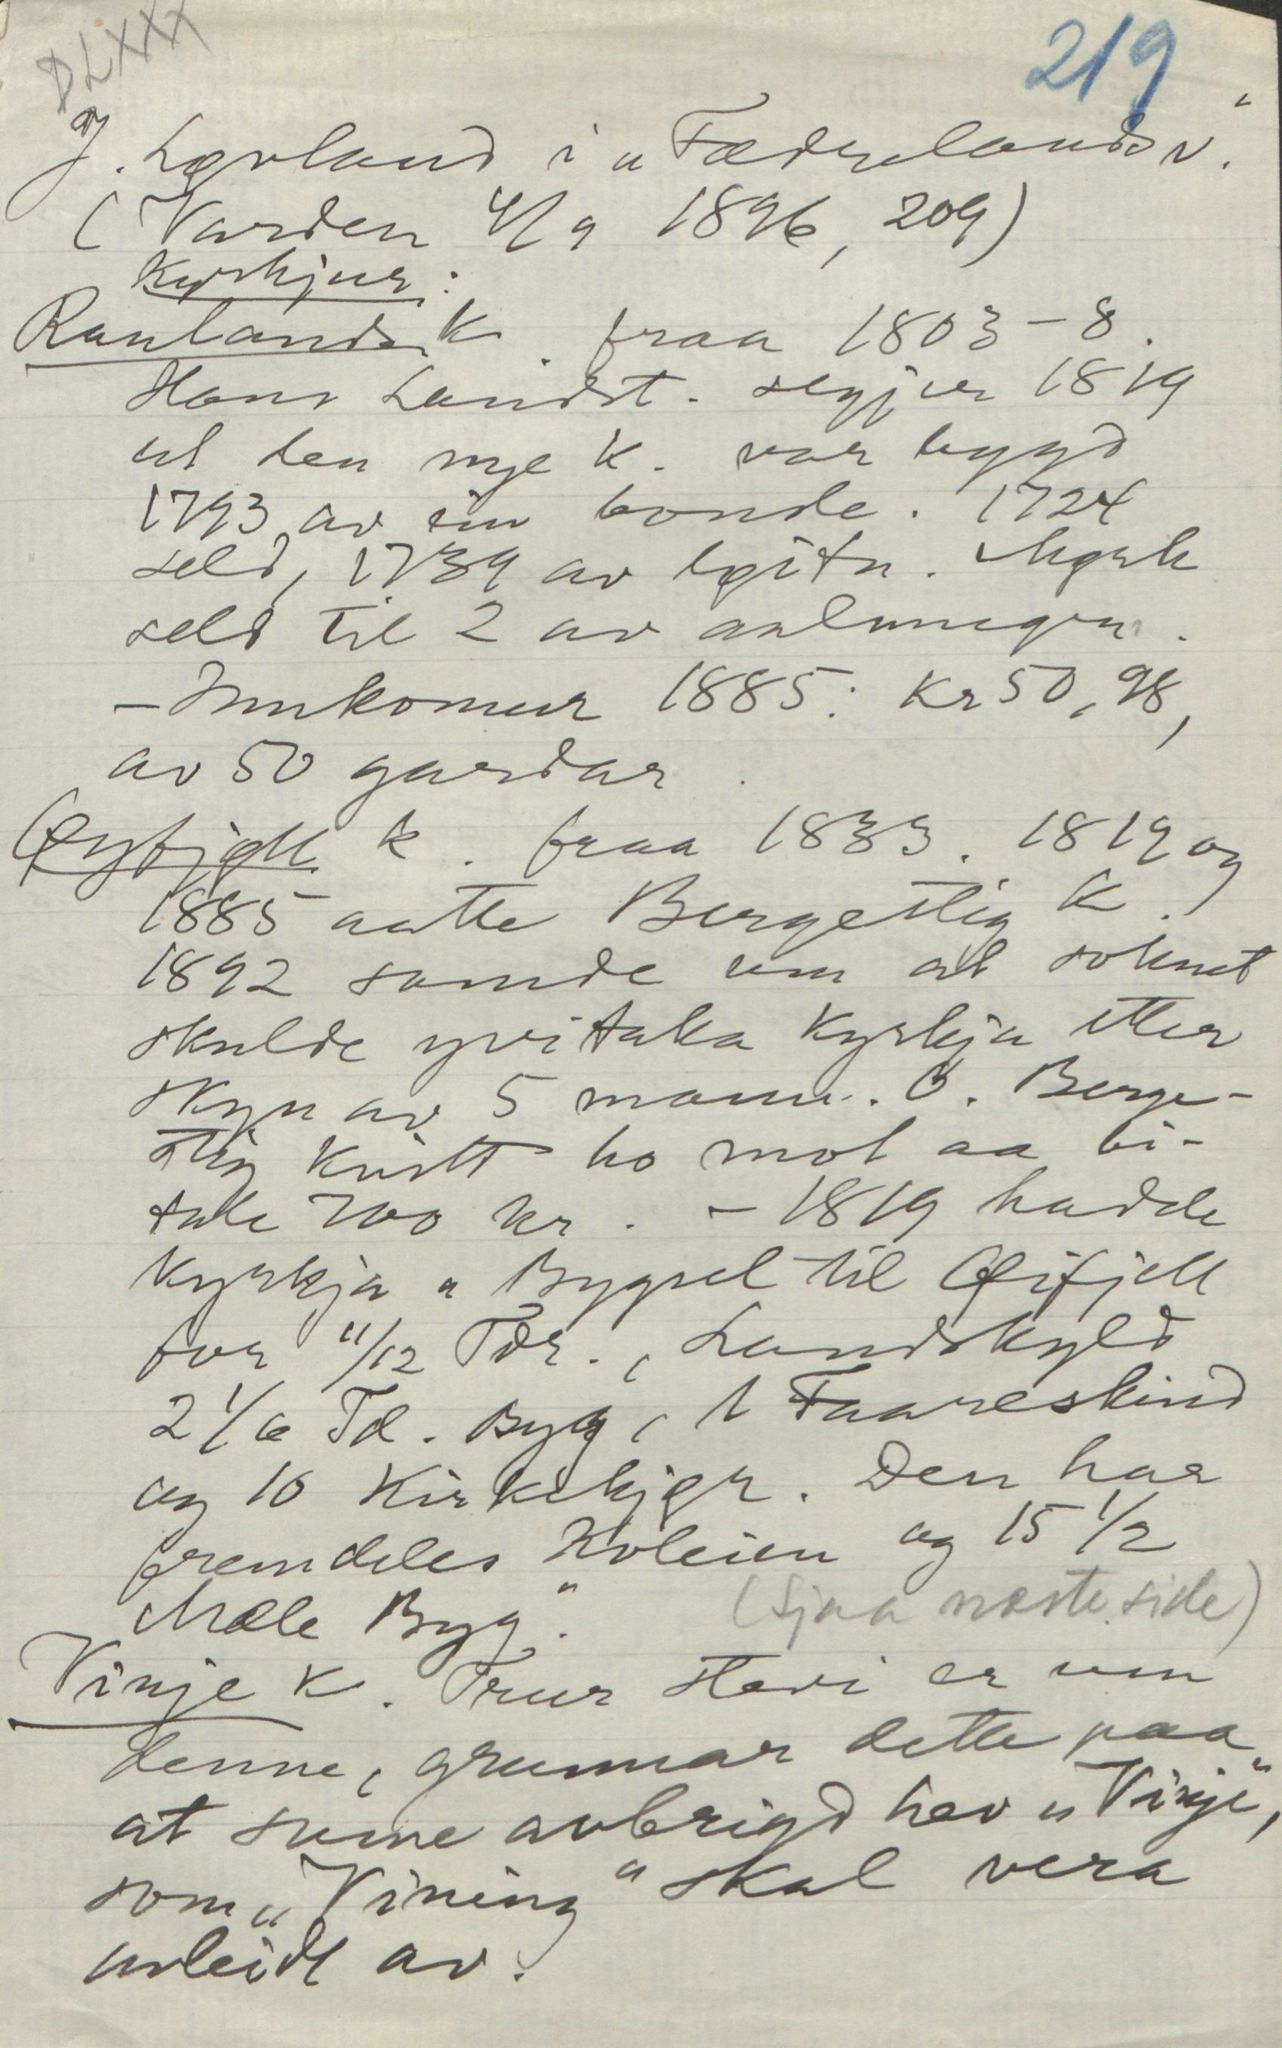 DLXXX
219
J. Løvland i „Fædrelandsv."
(Varden 4/9 1896, 209)
Kyrkjur:
Raulands K. fraa 1803-8.
Hans Landst. segjer 1819
at den nye K. var bygd
1793 av ein bonde. 1724
seld, 1739 av løitn. Mørk
seld til 2 av aalmugen.
- Innkomur 1885: Kr 50,98,
av 50 gardar.
Øyfjell k. fraa 1833. 1819 og
1885 aatte Bergestig K.
1892 samde um at soknet
skulde yvitaka Kyrkja etter
skyn av 5 mann. O. Berge-
stig kvitt ho mot aa bi-
tale 700 kr. - 1819 hadde
Kyrkja „Bygsel til Øifjell
for 11/12 Tdr., Landskyld
2 1/6 Td. Byg, 1 Faareskind
og 10 Kirkekjør. Den har
fremdeles Koleien og 15 1/2
Mæle Byg".
(Sjaa næste side)
Vinje K. Trur Stevi er um
denne, grunnar dette paa
at sume avbrigd hev „Vinje",
som „Vining" skal vera
avleidt av.